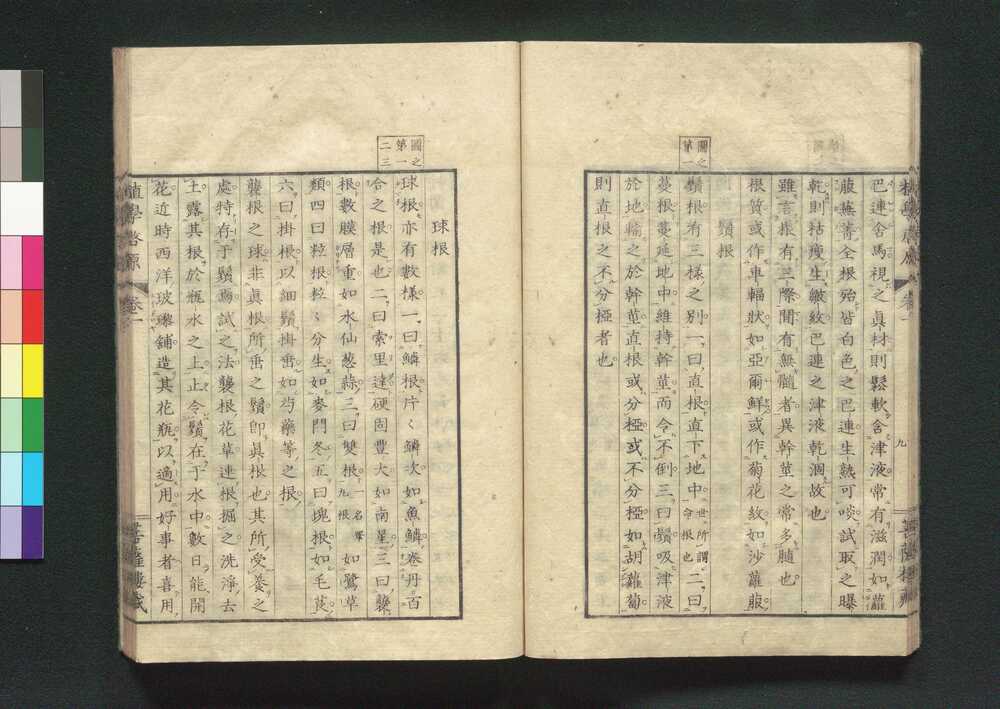 巴連舍馬視之眞材則鬆軟含津液常有滋潤如蘿
菔蕪菁全根殆皆白色之巴連生熟可啖試取之曝
乾則枯瘦生皺紋巴連之津液乾涸故也
雖言根有三際間有無髓者異幹莖之常多髓也
根質或作車輻狀如亞爾鮮或作菊花紋如沙蘿菔
鬚根
圖之第一
鬚根有三樣之別一曰直根直下地中世所謂命根也二曰
蔓根蔓延地中維持幹莖而令不倒三曰鬚吸津液
於地輸之於幹莖直根或分椏或不分椏如胡蘿蔔
則直根之不分椏者也
九
球根
圖之第一二三
球根亦有數樣一曰鱗根片〻鱗次如魚鱗卷丹百
合之根是也二曰索里達硬固豊大如南星三曰襲
根數膜層重如水仙葱蒜三曰雙根一名睪九根如鷺草
類四曰粒根粒〻分生如麥門冬五曰塊根如毛茛
六曰掛根以細鬚掛垂如芍藥等之根
襲根之球非眞根所垂之鬚卽眞根也其所受養之
處特存于鬚焉試之法襲根花草連根掘之洗淨去
土露其根於瓶水之上止令鬚在于水中數日能開
花近時西洋玻瓈舖造其花瓶以適用好事者喜用
植學啓原 卷一